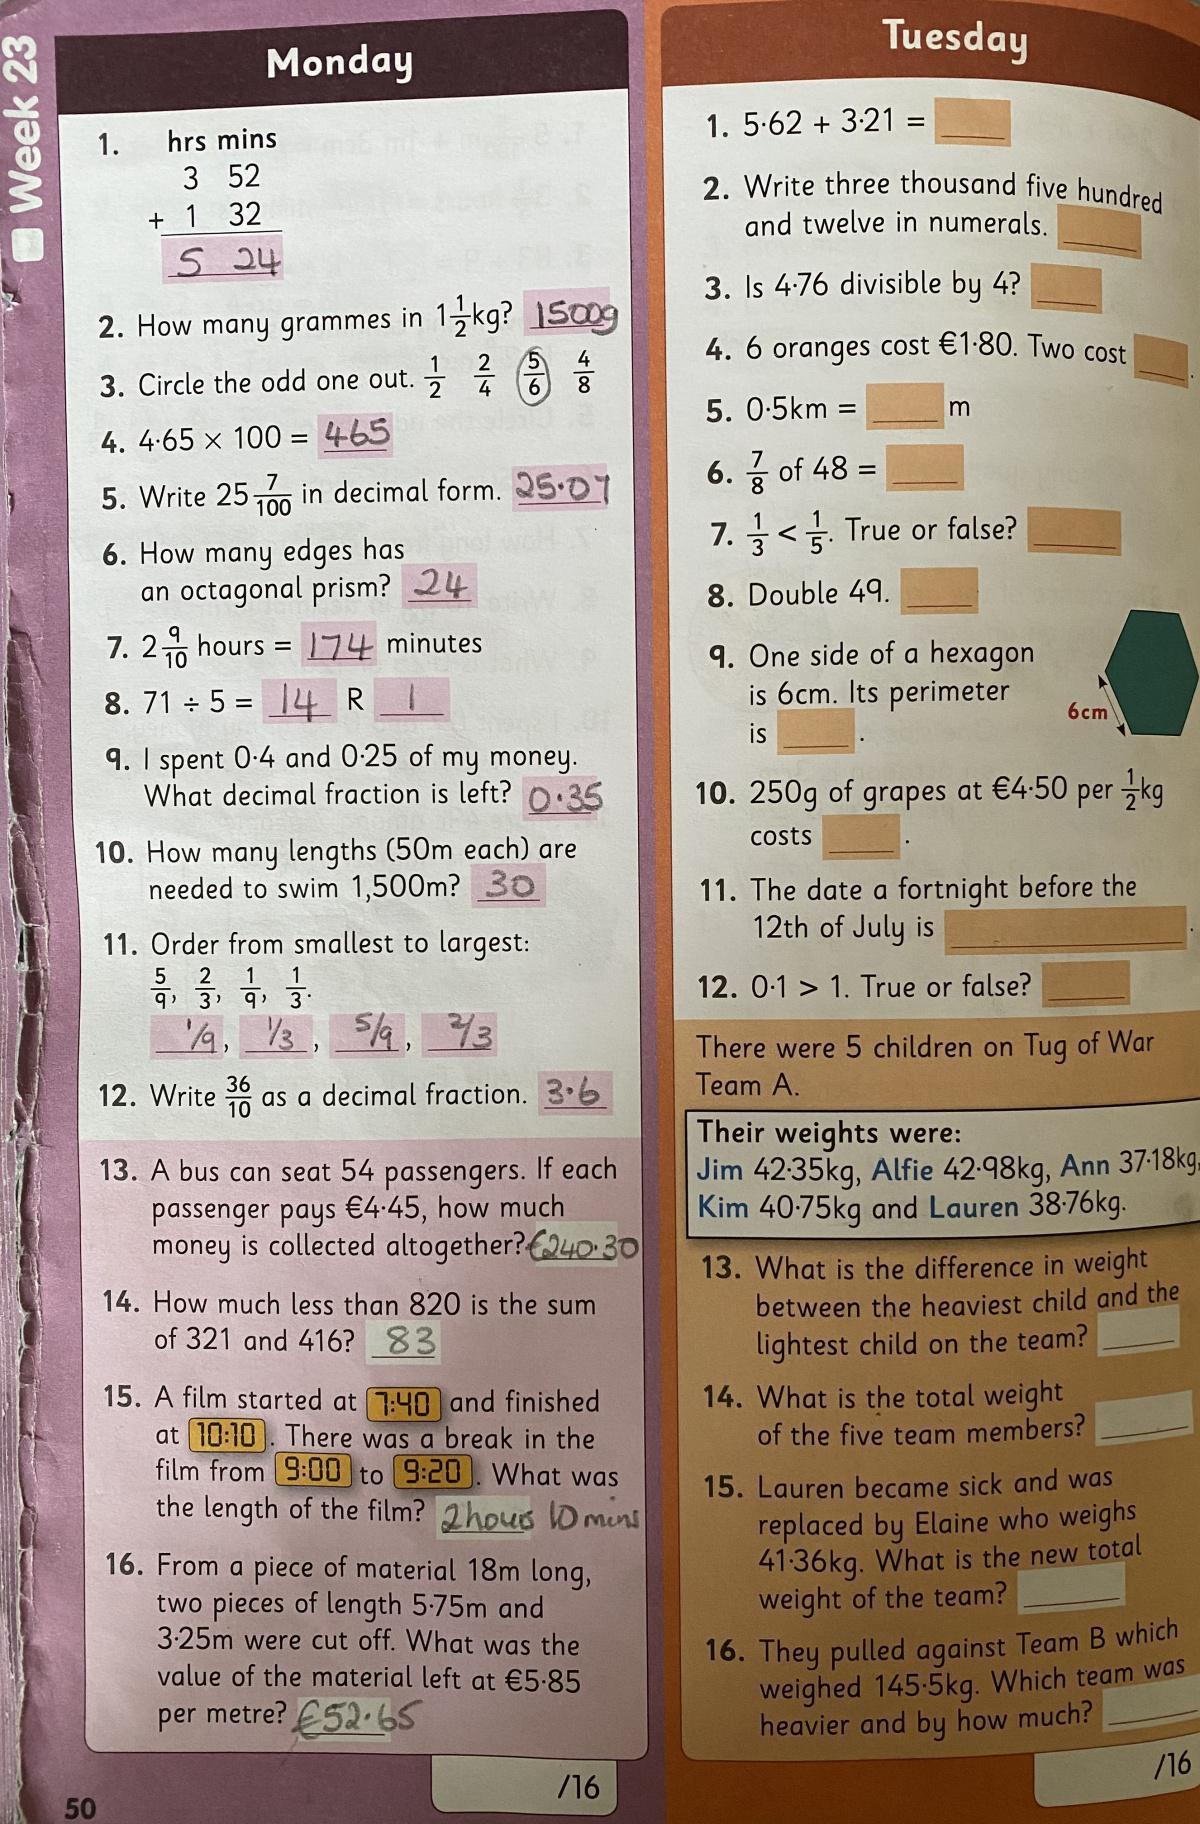 Week 23
Monday
1. hrs mins
3 52
+ 1 32
5 24
2. How many grammes in 1 1/2 kg? 1500g
3. Circle the odd one out. 1/2 2/4 5/6 4/8
4. 4·65 × 100 = 465
5. Write 25 7/100 in decimal form. 25·07
6. How many edges has
an octagonal prism? 24
7. 2 9/10 hours = 174 minutes
8. 71 ÷ 5 = 14 R 1
9. I spent 0·4 and 0·25 of my money.
What decimal fraction is left? 0·35
10. How many lengths (50m each) are
needed to swim 1,500m? 30
11. Order from smallest to largest:
5/9, 2/3, 1/9, 1/3.
1/9, 1/3, 5/9, 2/3
12. Write 36/10 as a decimal fraction. 3·6
13. A bus can seat 54 passengers. If each
passenger pays €4·45, how much
money is collected altogether? €240·30
14. How much less than 820 is the sum
of 321 and 416? 83
15. A film started at 7:40 and finished
at 10:10. There was a break in the
film from 9:00 to 9:20. What was
the length of the film? 2 hours 10 mins
16. From a piece of material 18m long,
two pieces of length 5·75m and
3·25m were cut off. What was the
value of the material left at €5·85
per metre? €52·65
/16
50
Tuesday
1. 5·62 + 3·21 =
2. Write three thousand five hundred
and twelve in numerals.
3. Is 4·76 divisible by 4?
4. 6 oranges cost €1·80. Two cost .
5. 0·5km = m
6. 7/8 of 48 =
7. 1/3 < 1/5. True or false?
8. Double 49.
9. One side of a hexagon
is 6cm. Its perimeter
is .
6cm
10. 250g of grapes at €4·50 per 1/2 kg
costs .
11. The date a fortnight before the
12th of July is .
12. 0·1 > 1. True or false?
There were 5 children on Tug of War
Team A.
Their weights were:
Jim 42·35kg, Alfie 42·98kg, Ann 37·18kg,
Kim 40·75kg and Lauren 38·76kg.
13. What is the difference in weight
between the heaviest child and the
lightest child on the team?
14. What is the total weight
of the five team members?
15. Lauren became sick and was
replaced by Elaine who weighs
41·36kg. What is the new total
weight of the team?
16. They pulled against Team B which
weighed 145·5kg. Which team was
heavier and by how much?
/16